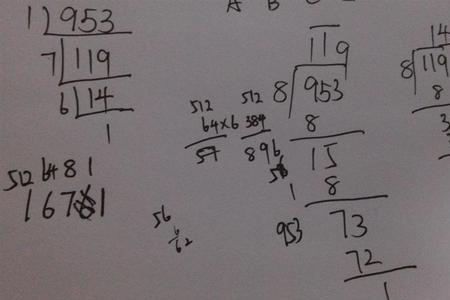 A B C
1 953
7 119
6 14
1
512 64 8 1
1 6 7 1
512
64×6
512
384
896
56
1
953
119
8 953
8
15
8
73
72
1
56
6
62
14
8 119
8
3